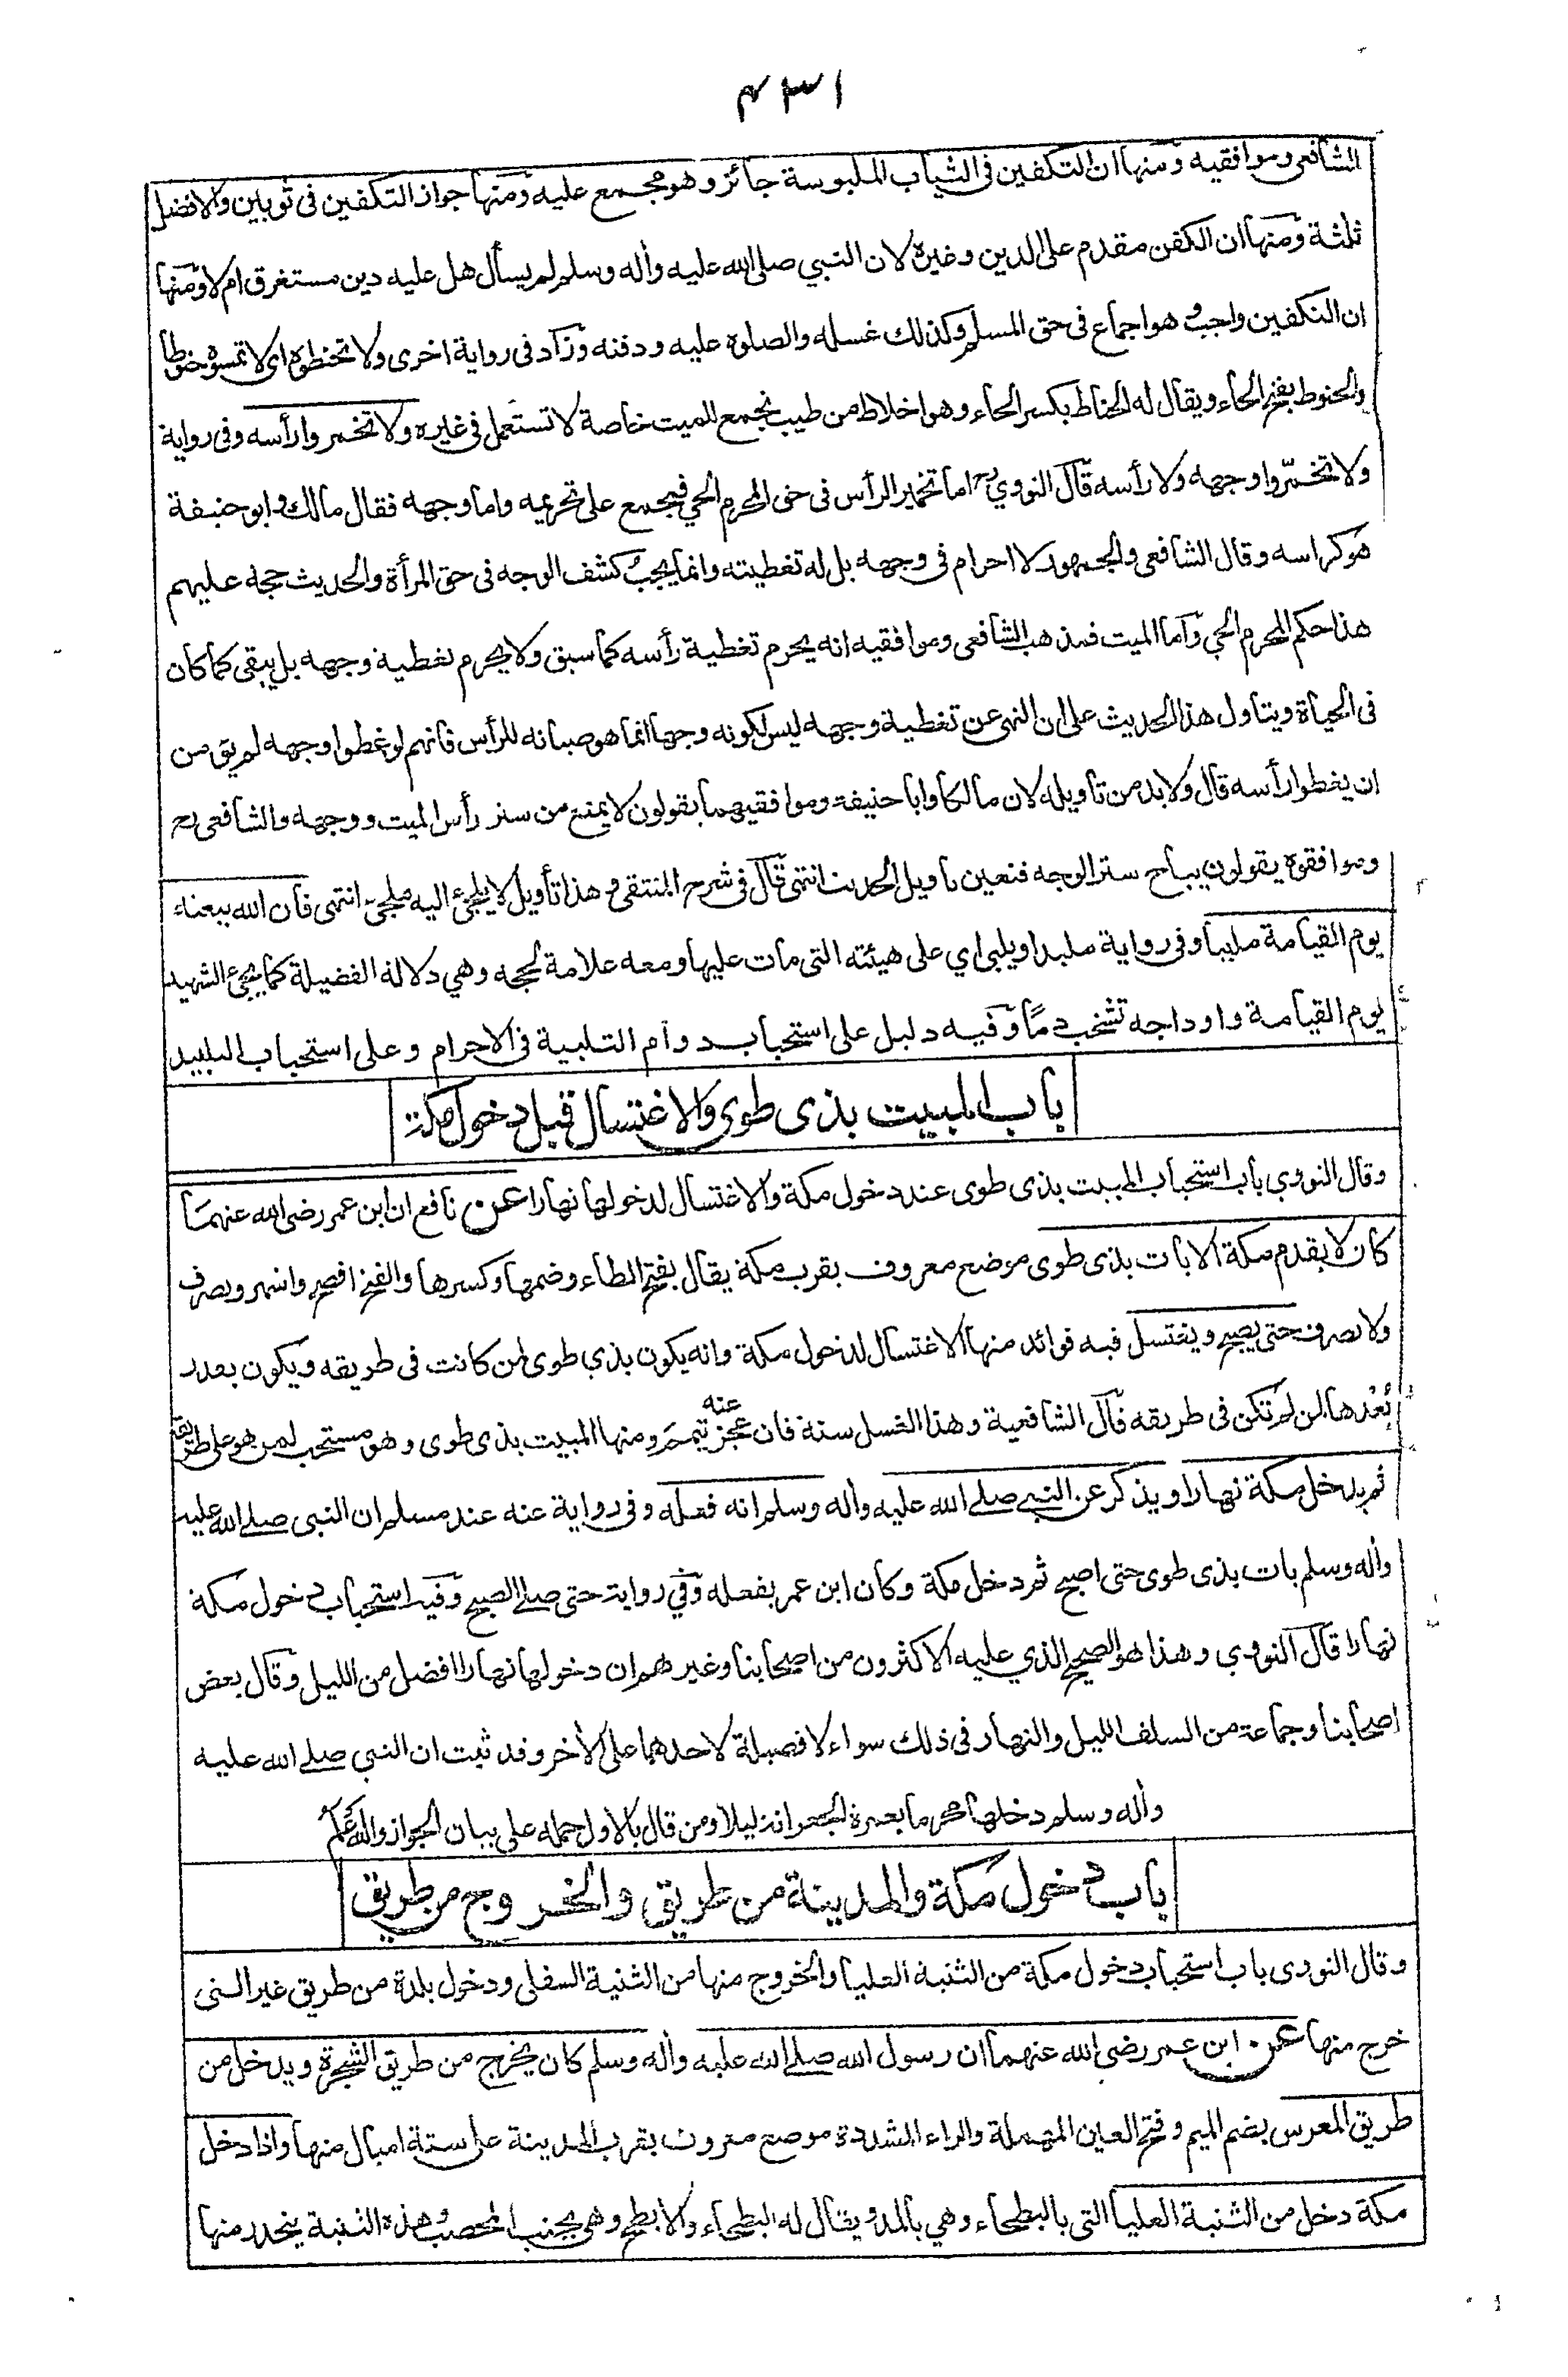 ٤٣١
الشافعي وموافقيه ومنها ان التكفين في الثياب الملبوسة جائز وهو مجمع عليه ومنها جواز التكفين في ثوبين والافضل
ثلثة ومنها ان الكفن مقدم على الدين وغيره لان النبي صلى الله عليه واله وسلم لم يسأل هل عليه دين مستغرق ام لا ومنها
ان التكفين واجب وهو اجماع في حق المسلم وكذلك غسله والصلوة عليه ودفنه وزاد في رواية اخرى ولا تحنطوه اي لا تمسوه حنوطا
والحنوط بفتح الحاء ويقال له الحناط بكسر الحاء وهو اخلاط من طيب تجمع للميت خاصة لا تستعمل في غيره ولا تخمروا رأسه وفي رواية
ولا تخمّروا وجهه ولا رأسه قال النووي رح اما تخمير الرأس في حق المحرم الحي فمجمع على تحريمه واما وجهه فقال مالك وابو حنيفة
هو كراسه وقال الشافعي والجمهور لا احرام في وجهه بل له تغطيته وانما يجب كشف الوجه في حق المرأة والحديث حجة عليهم
هذا حكم المحرم الحي واما الميت فمذهب الشافعي وموافقيه انه يحرم تغطية رأسه كما سبق ولا يحرم تغطية وجهه بل يبقى كما كان
في الحياة ويتاول هذا الحديث على ان النهي عن تغطية وجهه ليس لكونه وجها انما هو صيانه للرأس فانهم لو غطوا وجهه لم يؤمن
ان يغطوا رأسه قال ولا بد من تأويله لان مالكا وابا حنيفة وموافقيهما يقولون لا يمنع من ستر رأس الميت ووجهه والشافعي رح
وموافقوه يقولون يباح ستر الوجه فتعين تاويل الحديث انتهى قال في شرح المنتقى وهذا تأويل لا يلجئ اليه ملجئ انتهى فان الله يبعثه
يوم القيامة ملبيا وفي رواية ملبدا ويلبي اي على هيئته التي مات عليها ومعه علامة لحجه وهي دلالة الفضيلة كما يجئ الشهيد
يوم القيامة واوداجه تشخب دمًا وفيه دليل على استحباب دوام التلبية في الاحرام وعلى استحباب التلبيد
باب المبيت بذي طوى والاغتسال قبل دخول مكة
وقال النووي باب استحباب المبيت بذي طوى عند دخول مكة والاغتسال لدخولها نهارا عن نافع ان ابن عمر رضي الله عنهما
كان لا يقدم مكة الا بات بذي طوى موضع معروف بقرب مكة يقال بفتح الطاء وضمها وكسرها والفتح افصح واشهر ويصرف
ولا يصرف حتى يصبح ويغتسل فيه فوائد منها الاغتسال لدخول مكة وانه يكون بذي طوى لمن كانت في طريقه ويكون بقدر
بُعْدها لمن لم تكن في طريقه قال الشافعية وهذا الغسل سنة فان عجز عنه تيمم ومنها المبيت بذي طوى وهو مستحب لمن هو على طريقه
ثم يدخل مكة نهارا ويذكر عن النبي صلى الله عليه واله وسلم انه فعله وفي رواية عنه عند مسلم ان النبي صلى الله عليه
واله وسلم بات بذي طوى حتى اصبح ثم دخل مكة وكان ابن عمر يفعله وفي رواية حتى صلى الصبح وفيه استحباب دخول مكة
نهارا قال النووي وهذا هو الصحيح الذي عليه الاكثرون من اصحابنا وغيرهم ان دخولها نهارا افضل من الليل وقال بعض
اصحابنا وجماعة من السلف الليل والنهار في ذلك سواء لا فضيلة لاحدهما على الآخر وقد ثبت ان النبي صلى الله عليه
واله وسلم دخلها محرما بعمرة الجعرانة ليلا ومن قال بالاول حمله على بيان الجواز والله اعلم
باب دخول مكة والمدينة من طريق والخروج من طريق
وقال النووي باب استحباب دخول مكة من الثنية العليا والخروج منها من الثنية السفلى ودخول بلدة من طريق غير التي
خرج منها عن ابن عمر رضي الله عنهما ان رسول الله صلى الله عليه واله وسلم كان يخرج من طريق الشجرة ويدخل من
طريق المعرس بضم الميم وفتح العين المهملة والراء المشددة موضع معروف بقرب المدينة على ستة اميال منها واذا دخل
مكة دخل من الثنية العليا التي بالبطحاء وهي بالمد ويقال له البطحاء والابطح وهي بجنب المحصب وهذه الثنية ينحدر منها